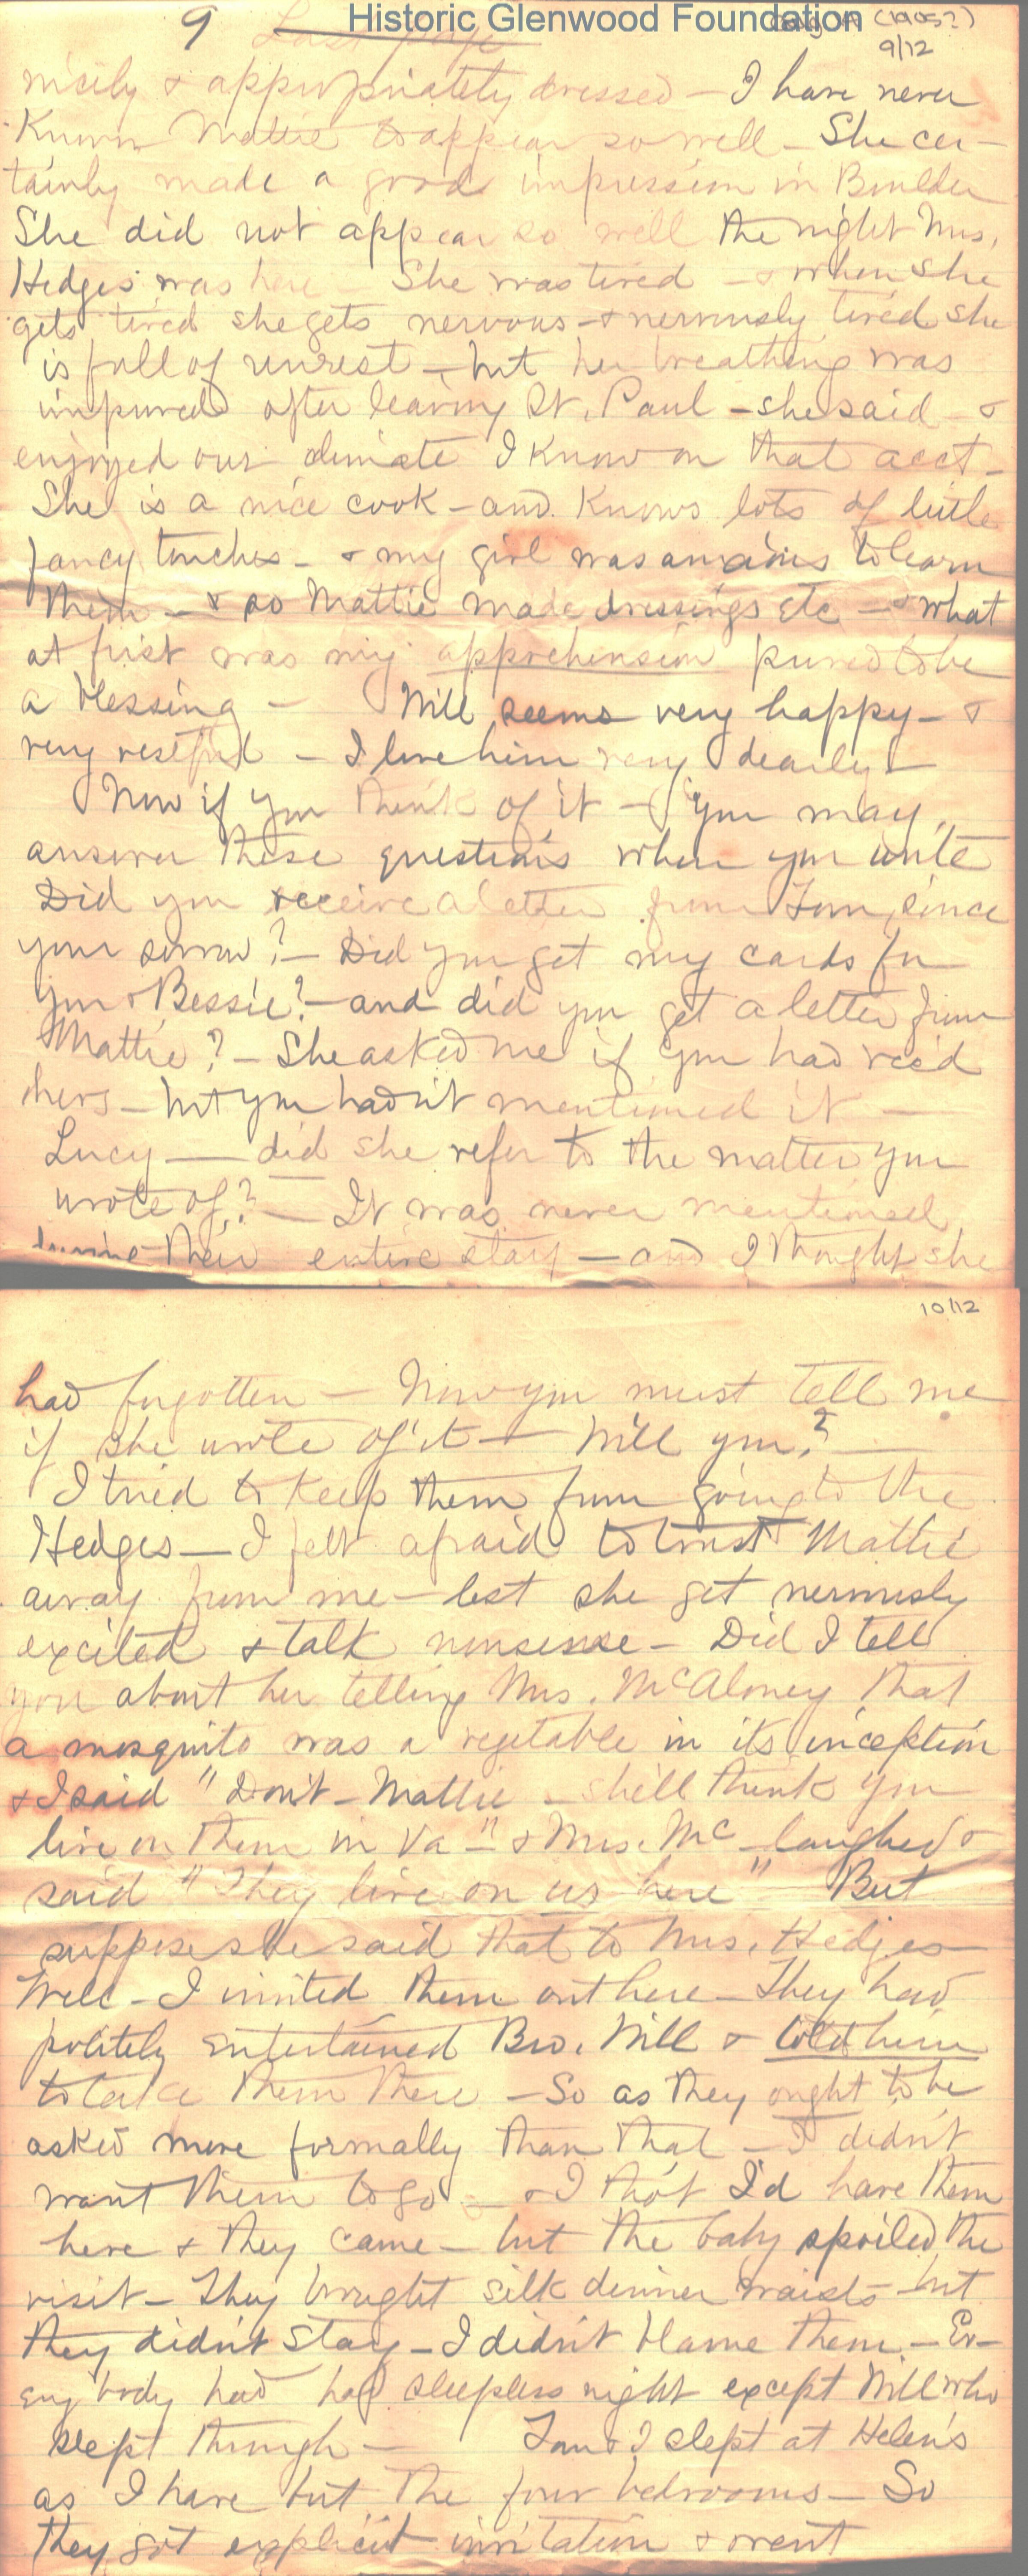 Historic Glenwood Foundation
(1905?)
9 Last page
9/12
nicely & appropriately dressed — I have never
Known Mattie to appear so well — She cer-
tainly made a good impression in Boulder
She did not appear so well the night Mrs.
Hedges was here — She was tired — & when she
gets tired she gets nervous — & nervously tired she
is full of unrest — but her breathing was
improved after leaving St. Paul — she said — &
enjoyed our climate I Know on that acct —
She is a nice cook — and Knows lots of little
fancy touches — & my girl was anxious to learn
them — & so Mattie made dressings etc — & what
at first was my apprehension proved to be
a blessing — Will seems very happy — &
very restful — I love him very dearly —
Now if you think of it — you may
answer these questions when you write
Did you receive a letter from Tom, since
your sorrow? — Did you get my cards for
you & Bessie? — and did you get a letter from
Mattie? — She asked me if you had rec'd
hers — but you hadn't mentioned it —
Lucy — did she refer to the matter you
wrote of? — It was never mentioned
during their entire stay — and I thought she
10/12
had forgotten — Now you must tell me
if she wrote of it — Will you? —
I tried to keep them from going to the
Hedges — I felt afraid to trust Mattie
away from me — lest she get nervously
excited & talk nonsense — Did I tell
you about her telling Mrs. McAloney that
a mosquito was a vegetable in its inception
& I said "Don't — Mattie — she'll think you
live on them in Va — " & Mrs. Mc — laughed &
said "They live on us here" But
suppose she said that to Mrs. Hedges —
Well — I invited them out here — They had
politely entertained Bro. Will & told him
to take them there — So as they ought to be
asked more formally than that — I didn't
want them to go — & I tho't I'd have them
here & they came — but the baby spoiled the
visit — They brought silk dinner waists — but
they didn't stay — I didn't blame them — Ev-
ery body had had sleepless night except Will who
slept through — Tom & I slept at Helen's
as I have but the four bedrooms — So
they got explicit invitation & went